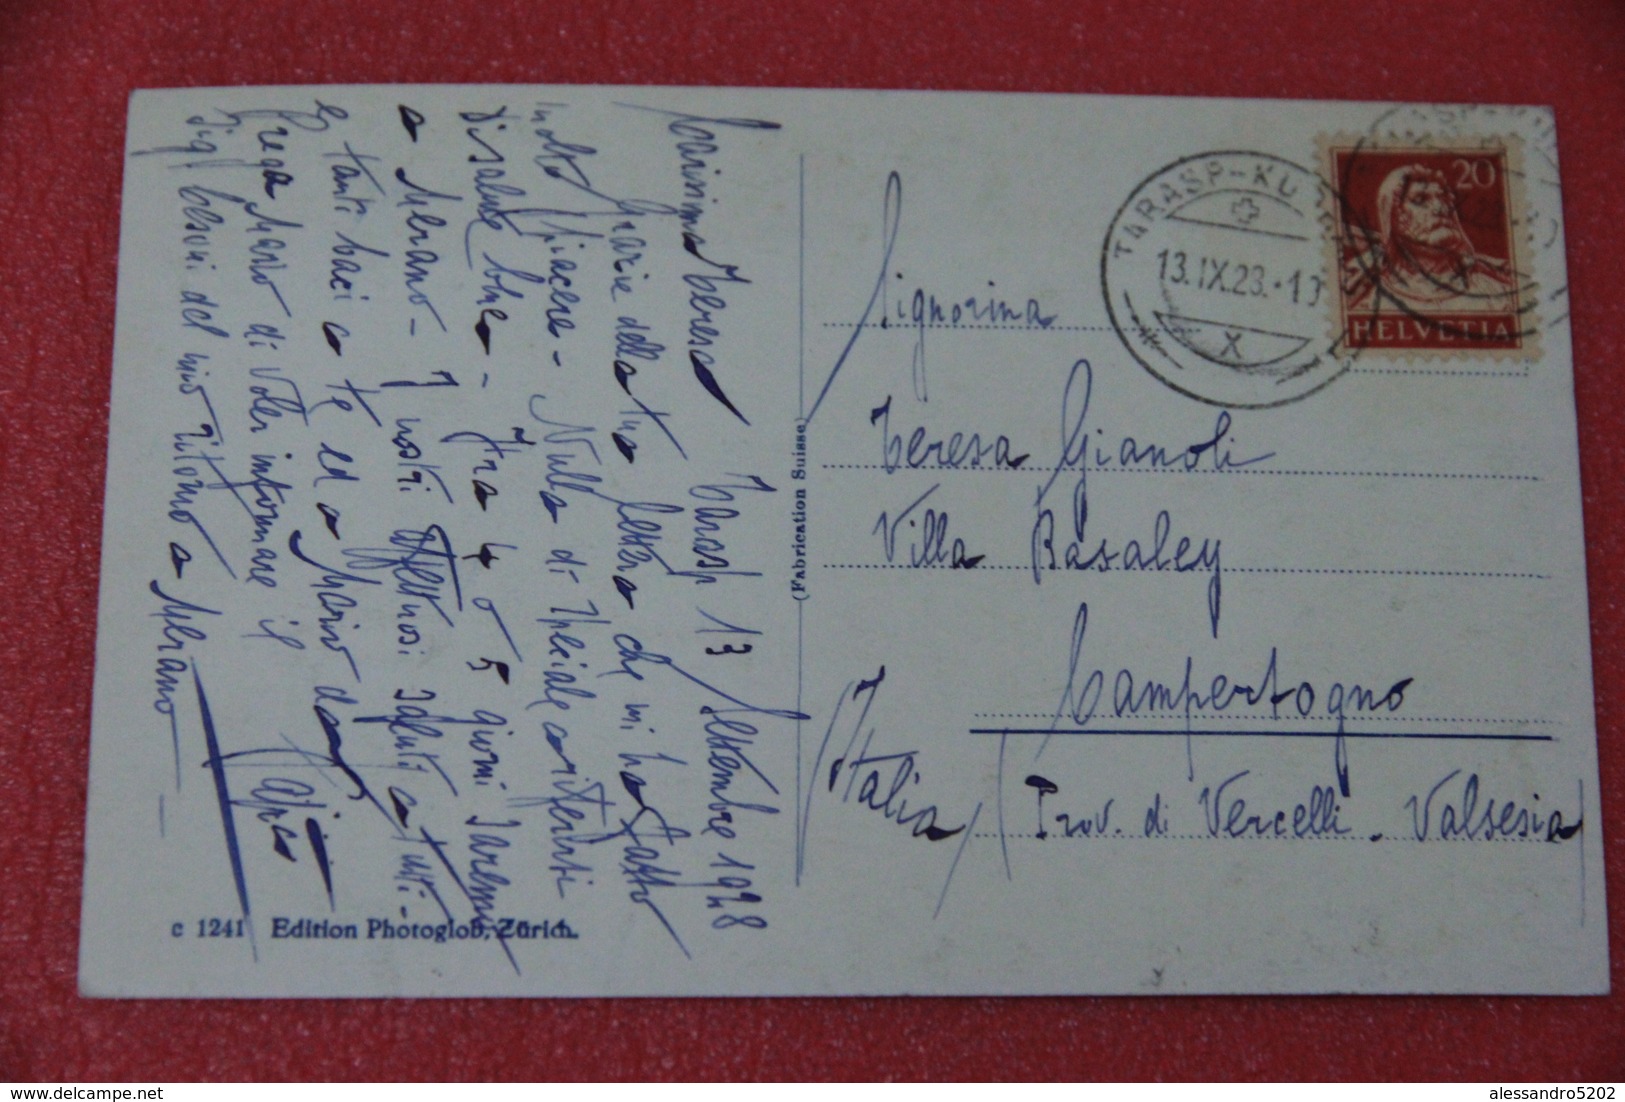 Carissima Teresa Tarasp 13 Settembre 1928
Grazie della tua lettera che mi ha fatto
molto piacere - Nulla di speciale a riferirti
di salute bene - Fra 4 o 5 giorni saremo
a Merano - I nostri affettuosi saluti a tutti -
e tanti baci a te ed a Mario da
Prega Mario di voler informare il
Sig. del mio ritorno a Merano
c 1241 Edition Photoglob, Zürich.
(Fabrication Suisse)
TARASP-KURHAUS
13.IX.28.-10
X
20
HELVETIA
Signorina
Teresa Gianoli
Villa Basaley
Campertogno
(Prov. di Vercelli. Valsesia)
Italia
alessandro5202